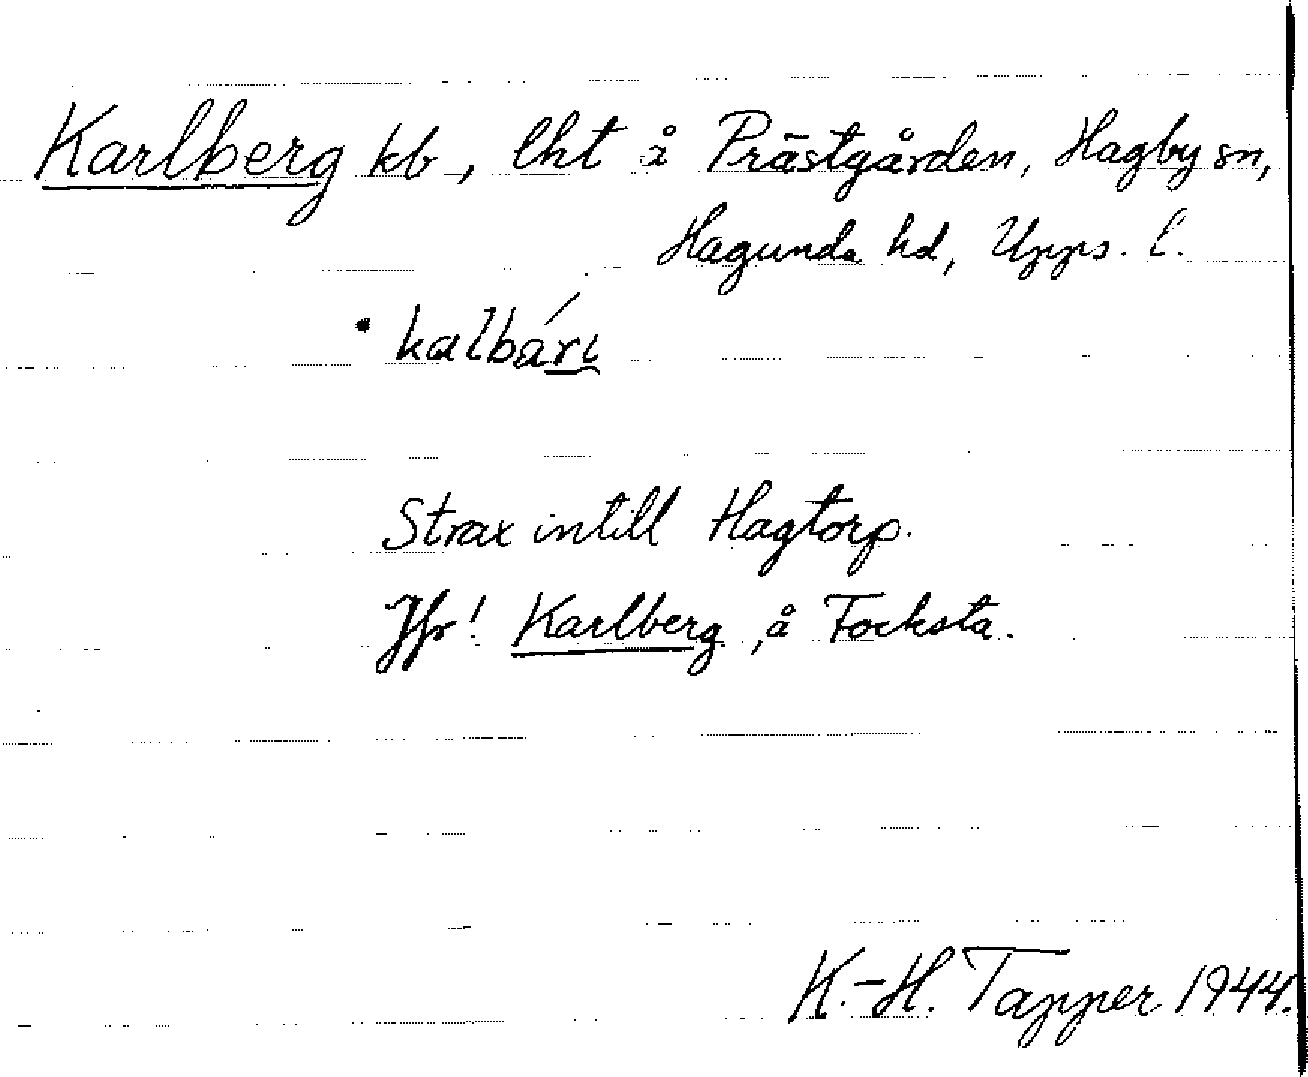 Karlberg kb, lht å Prästgården, Hagby sn,
Hagunda hd, Upps. l.
• kalbári
Strax intill Hagtorp.
Jfr! Karlberg, å Focksta.
K.-H. Tapper 1944.